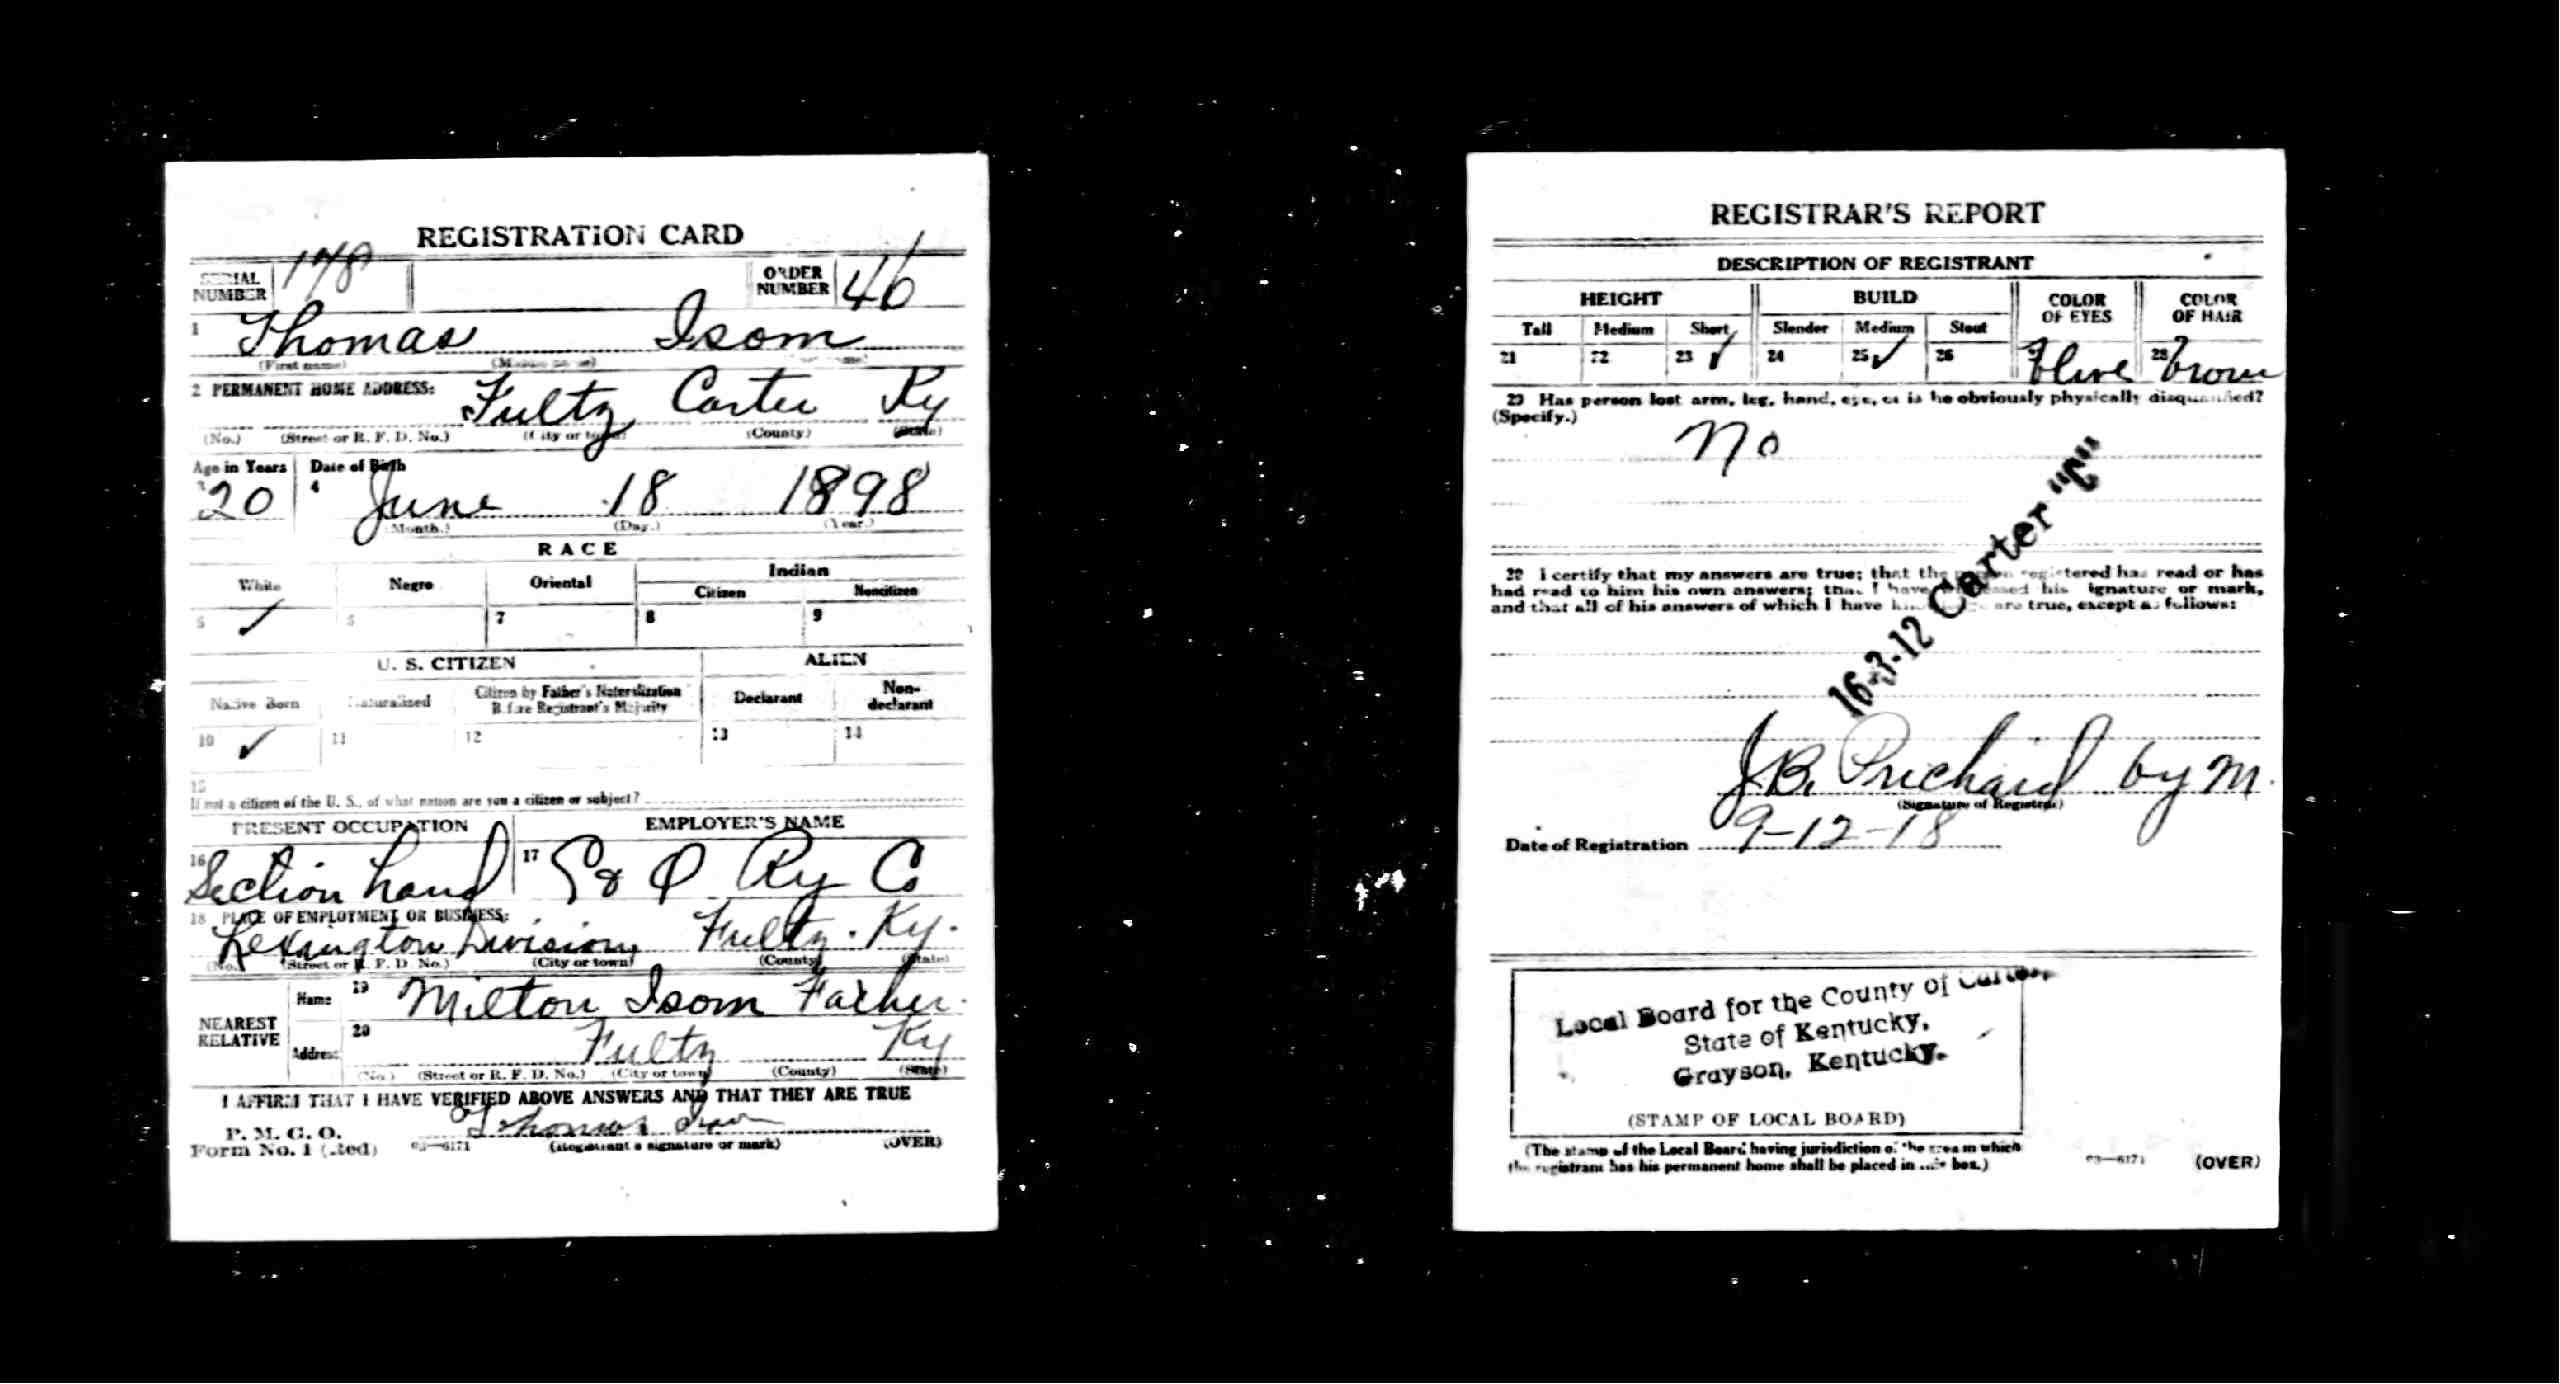 REGISTRATION CARD
SERIAL NUMBER 178 ORDER NUMBER 46
1 Thomas Isom
(First name) (Middle name) (Last name)
2 PERMANENT HOME ADDRESS: Fultz Carter Ky
(No.) (Street or R. F. D. No.) (City or town) (County) (State)
Age in Years Date of Birth
3 20 4 June 18 1898
(Month.) (Day.) (Year.)
RACE
White Negro Oriental Indian
Citizen Noncitizen
5 ✓ 6 7 8 9
U. S. CITIZEN ALIEN
Native Born Naturalized Citizen by Father's Naturalization Before Registrant's Majority Declarant Non-declarant
10 ✓ 11 12 13 14
15
If not a citizen of the U. S., of what nation are you a citizen or subject?
PRESENT OCCUPATION EMPLOYER'S NAME
16 Section hand 17 C & O Ry Co
18 PLACE OF EMPLOYMENT OR BUSINESS:
Lexington Division Fultz. Ky.
(No.) (Street or R. F. D. No.) (City or town) (County) (State)
NEAREST RELATIVE
Name 19 Milton Isom Father
Address 20 Fultz Ky
(No.) (Street or R. F. D. No.) (City or town) (County) (State)
I AFFIRM THAT I HAVE VERIFIED ABOVE ANSWERS AND THAT THEY ARE TRUE
P. M. G. O.
Form No. 1 (Red) 03—6171 Thomas Isom
(Registrant's signature or mark) (OVER)
REGISTRAR'S REPORT
DESCRIPTION OF REGISTRANT
HEIGHT BUILD COLOR OF EYES COLOR OF HAIR
Tall Medium Short Slender Medium Stout
21 22 23 ✓ 24 25 ✓ 26 27 28 brown
29 Has person lost arm, leg, hand, eye, or is he obviously physically disqualified?
(Specify.)
No
30 I certify that my answers are true; that the person registered has read or has
had read to him his own answers; that I have witnessed his signature or mark,
and that all of his answers of which I have knowledge are true, except as follows:
16-3-12 Carter "C"
J B. Prichard by M.
(Signature of Registrar)
Date of Registration 9-12-18
Local Board for the County of Carter,
State of Kentucky,
Grayson, Kentucky.
(STAMP OF LOCAL BOARD)
(The stamp of the Local Board having jurisdiction of the area in which
the registrant has his permanent home shall be placed in this box.)
03—6171 (OVER)